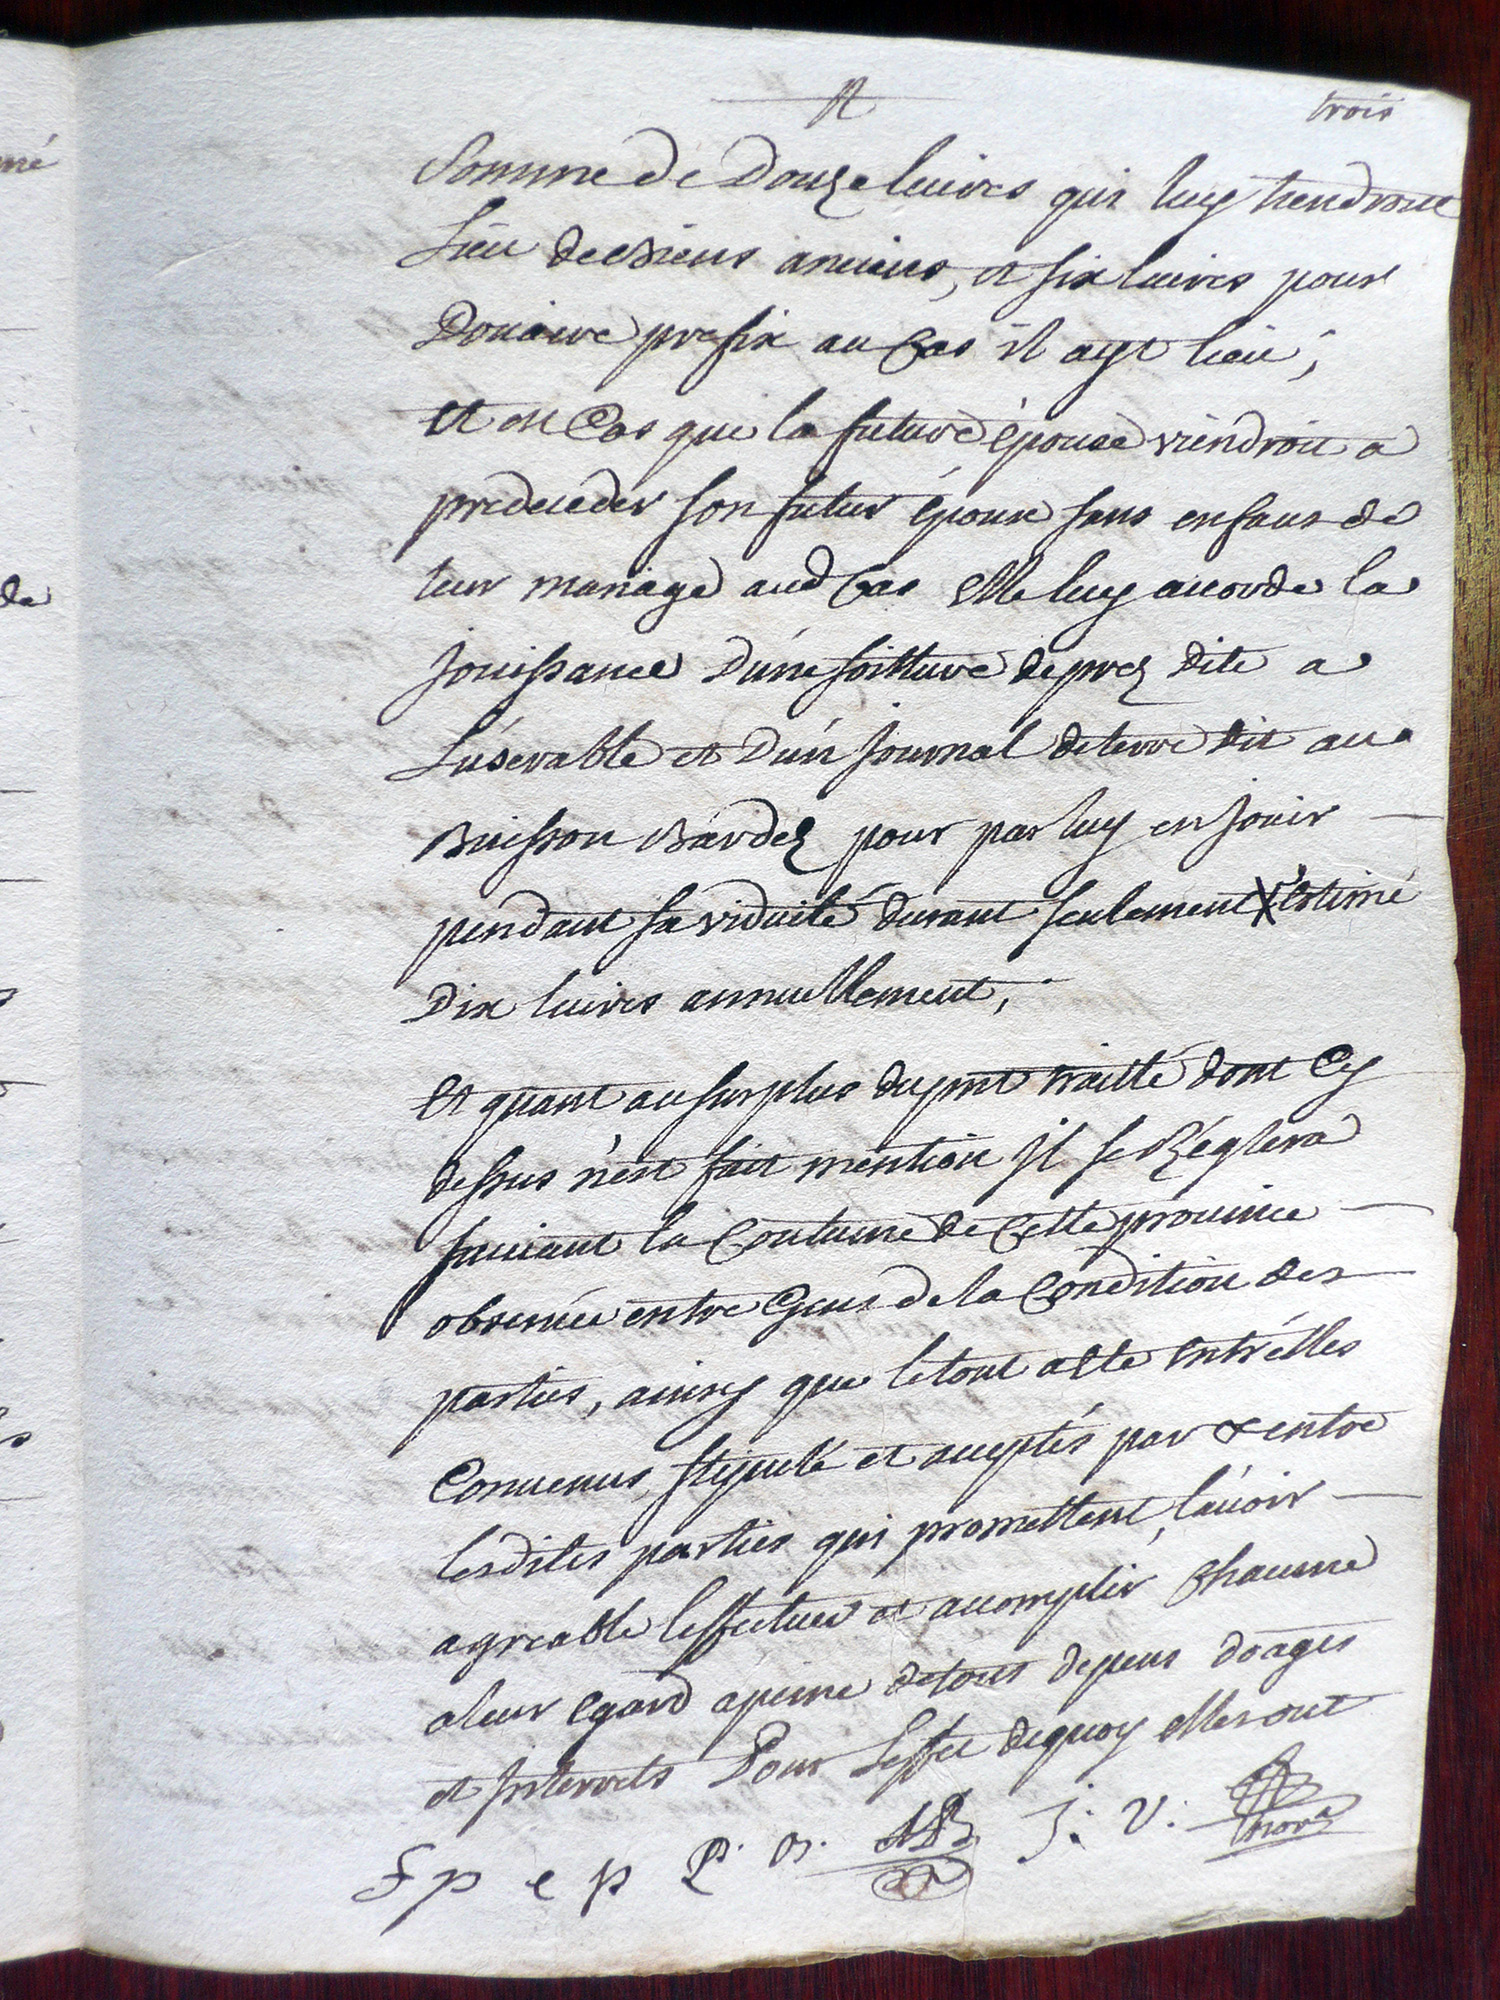 trois
Somme de Douze livres qui luy tiendront
Lieu de Biens anciens, et six livres pour
Douaire prefix au Cas il ayt lieu;
et en Cas que la future épouse viendroit a
predeceder son futur époux sans enfans de
leur mariage aud Cas elle luy acorde la
Jouissance D'une soitture de prez dite a
L'user able et D'un Journal de terre dit au
Buisson Bardez pour par luy en Jouir
pendant sa viduité durant seulement Estimé
Dix livres annuellement,
Et quant au surplus du pnt traitté dont Cy
dessus n'est fait mention Il se Réglera
suivant la Coutume de Cette province
observée entre Gens de la Condition des
parties, ainsy que le tout a été entr'elles
Convenus, stipulé et aceptés par & entre
lesdites parties qui promettent, l'avoir
agreable l'effectuer et acomplir Chacune
a leur Egard a peine de tous depens doages
et Interrets Pour L'effet de quoy elles ont
F p e p P. O. J. V.